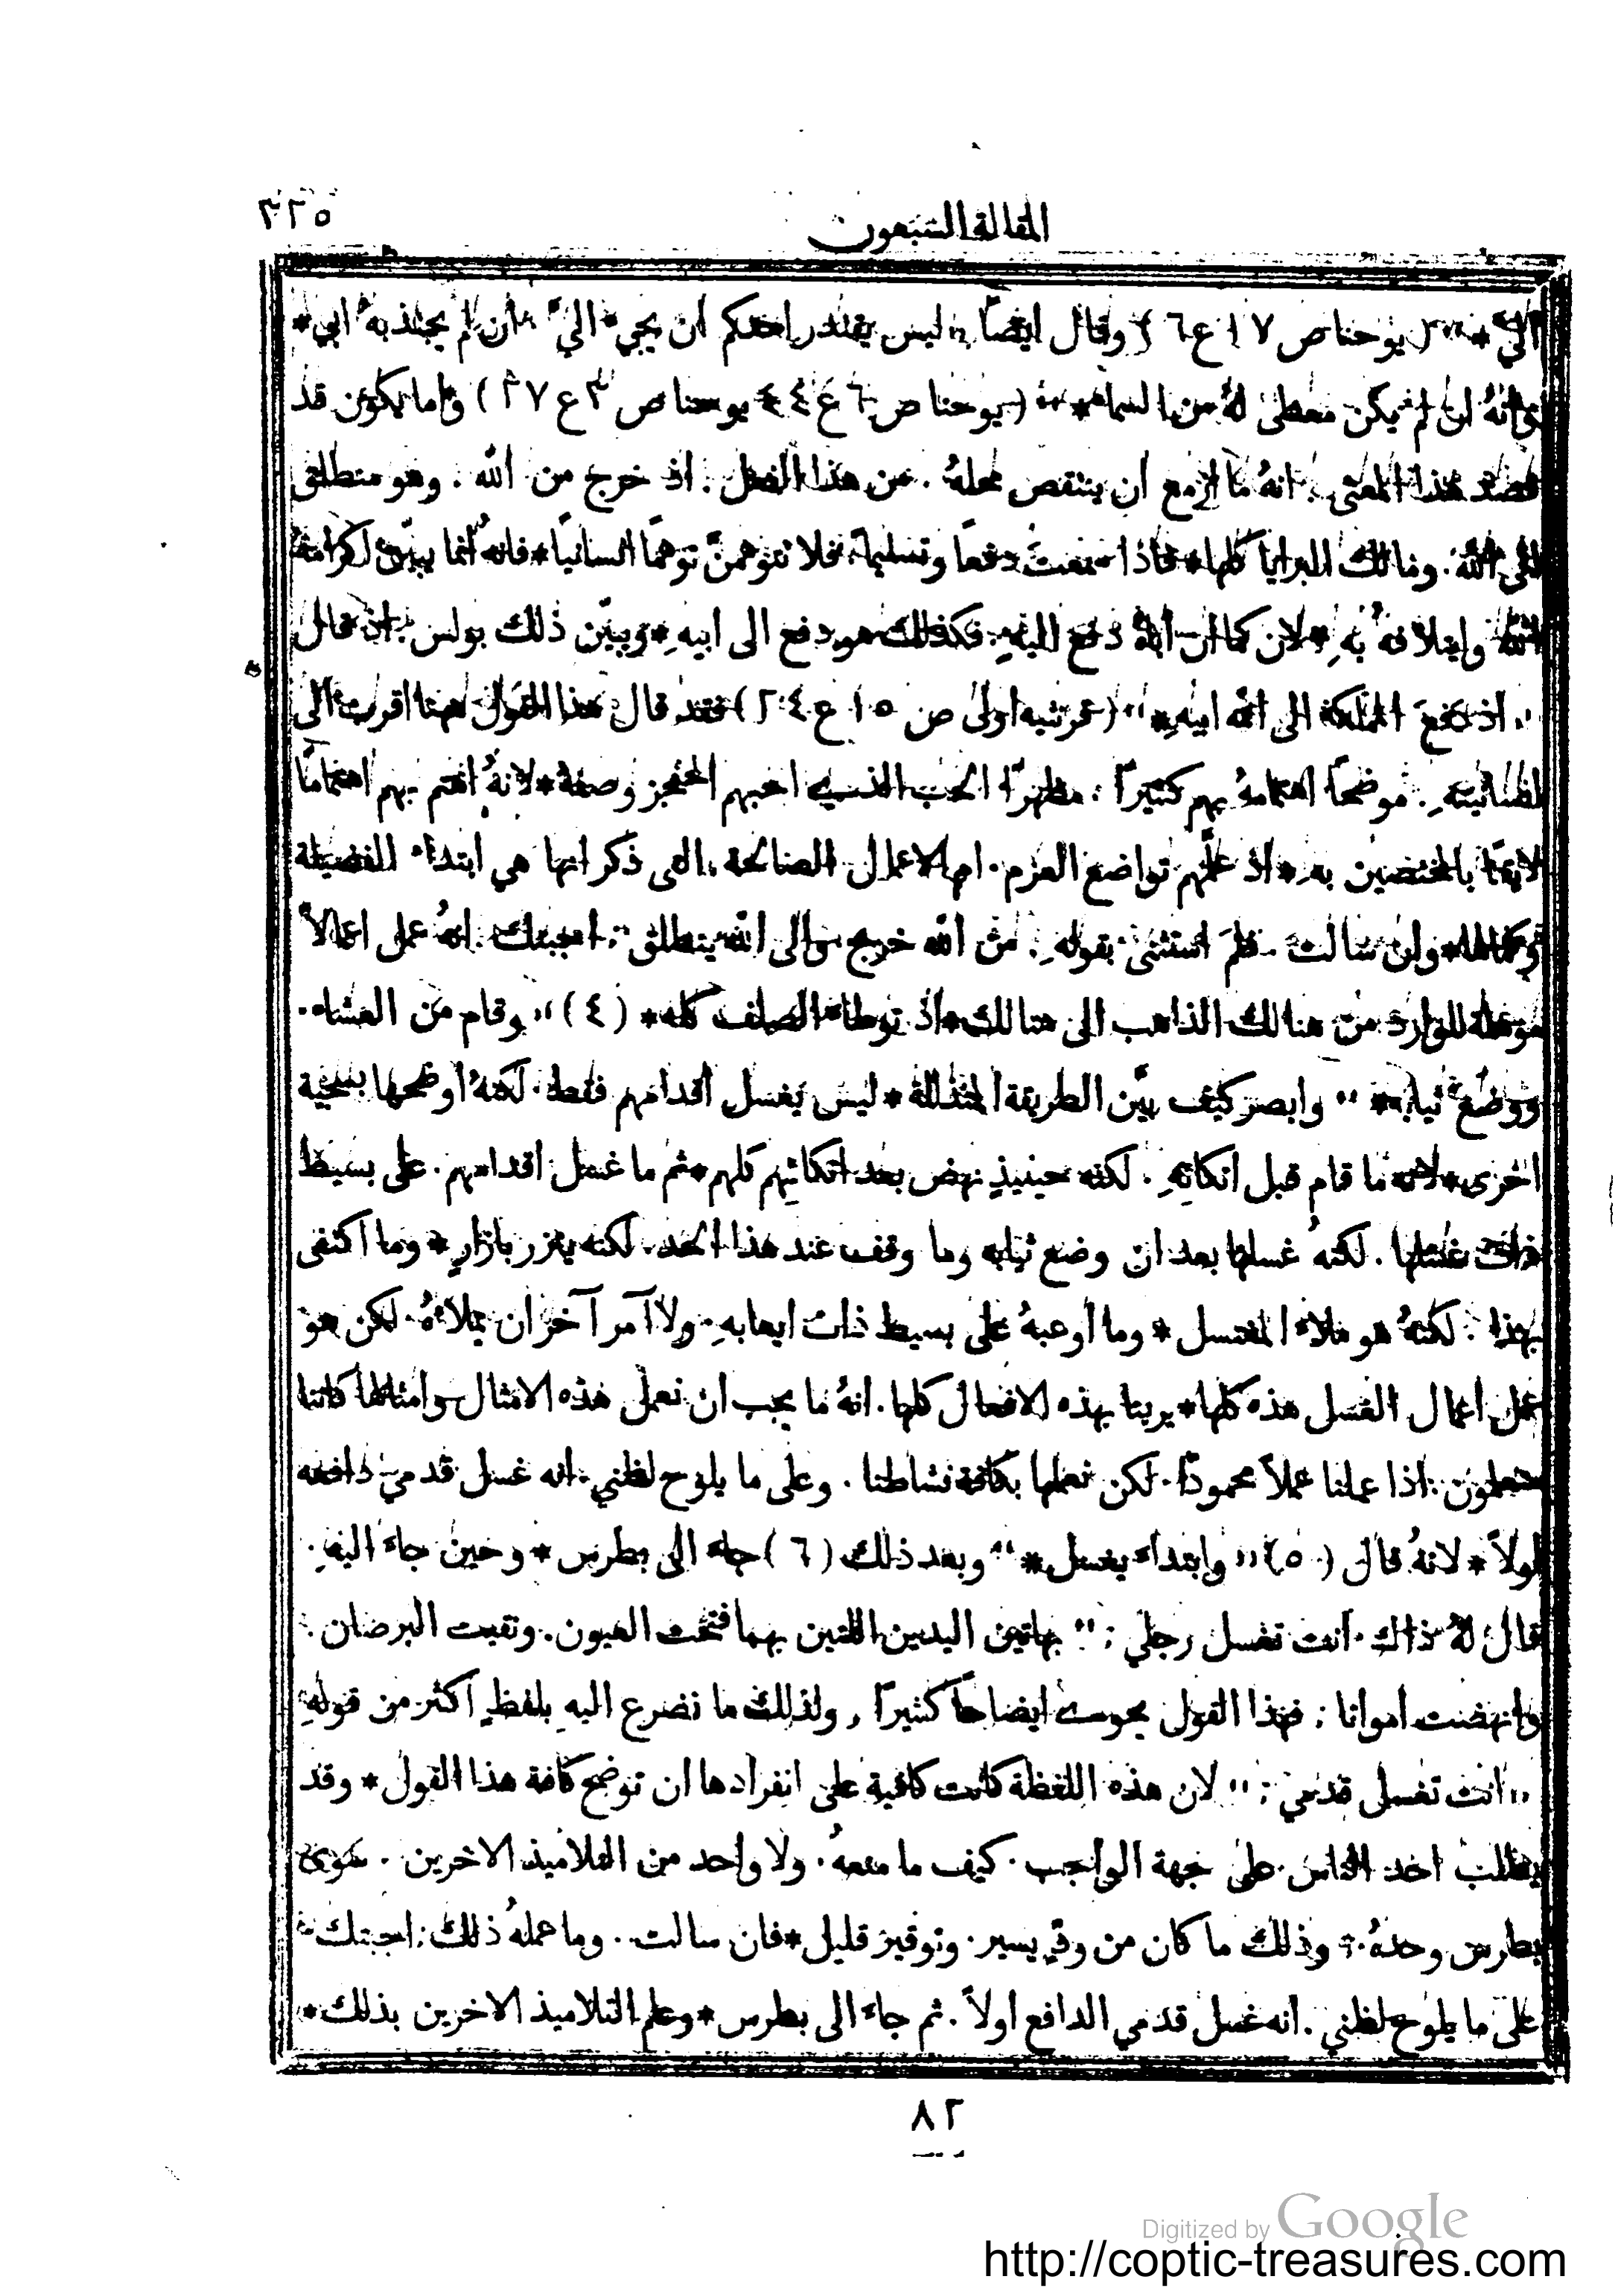 المقالة السبعون
٣٢٥
اليَّ * " ( يوحنا ص ١٧ ع ٦ ) وقال ايضًا " ليس يقتدر احدكم ان يجيء اليَّ " ان لم يجتذبه ابي *
وانهُ ان لم يكن معطى لهُ من السماء * " ( يوحنا ص ٦ ع ٤٤ يوحنا ص ٣ ع ٢٧ ) واما يكون قد
قصد هذا المعنى . انهُ ما ازمع ان ينتقص محلهُ . من هذا الفعل . اذ خرج من الله . وهو منطلق
الى الله . ومالك البرايا كلها * فاذا سمعت دفعًا وتسليمًا . فلا تتوهمنَّ توهمًا انسانيًا * فانهُ انما يبيّن اكرامهُ
وايتلافهُ بهِ * لان كما ان اباهُ دفع اليهِ . فكذلك هو دفع الى ابيهِ * ويبيّن ذلك بولس . اذ قال
" اذ دفع المملكة الى الله ابيهِ * " ( قرنثيه اولى ص ١٥ ع ٢٤ ) فقد قال هذا القول ههنا اقرب الى
انسانيتهِ . موضحًا اهتمامهُ بهم كثيرًا . مظهرًا الحب الذي احبهم المعجز وصفهُ * لانهُ اهتم بهم اهتمامًا
لايقًا بالمختصين بهِ * اذ علَّمهم تواضع العزم . ام الاعمال الصالحة . التى ذكر انها هي ابتداء الفضيلة
وكمالها * وان سالت . فلمَ استثنى بقولهِ . من الله خرج والى الله ينطلق . اجبتك . انهُ عمل اعمالاً
موهلة للوارد من هنالك الذاهب الى هنالك * اذ توطا الصلف كله * ( ٤ ) " وقام من العشاء .
ووضع ثيابه * " وابصر كيف بيَّن الطريقة المتذللة * ليس بغسل اقدامهم فقط . لكنهُ اوضحها بسجية
اخرى * لانه ما قام قبل اتكائهِ . لكنه حينيذٍ نهض بعد اتكائهم كلهم * ثم ما غسل اقدامهم . على بسيط
ذات غسلها . لكنهُ غسلها بعد ان وضع ثيابه وما وقف عند هذا الحد . لكنه يتزر بازارٍ * وما اكتفى
بهذا . لكنهُ هو ملاء المغتسل * وما أوعبهُ على بسيط ذات ايعابهِ . ولا آمر آخر ان يملاءهُ . لكن هو
عمل اعمال الغسل هذه كلها * يرينا بهذه الافعال كلها . انهُ ما يجب ان نعمل هذه الامثال وامثالها كاننا
متعطلون . اذا عملنا عملاً محمودًا . لكن نعملها بكافة نشاطنا . وعلى ما يلوح لظني . انه غسل قدمي دافعه
اولاً * لانهُ قال ( ٥ ) " وابتداء يغسل * " وبعد ذلك ( ٦ ) جاء الى بطرس * وحين جاء اليهِ .
قال لهُ ذاك . انت تغسل رجلي ; " بهاتين اليدين اللتين بهما فتحت العيون . ونقيت البرصان .
وانهضت امواتا ; فهذا القول يحوي ايضاحًا كثيرًا , ولذلك ما تضرع اليهِ بلفظٍ اكثر من قولهِ
" انت تغسل قدمي ; " لان هذه اللفظة كانت كافية على انفرادها ان توضح كافة هذا القول * وقد
يطلب احد الناس . على جهة الواجب . كيف ما منعهُ . ولا واحد من التلاميذ الاخرين . سوى
بطرس وحدهُ . وذلك ما كان من ودٍّ يسير . وتوقير قليل * فان سالت . وما عملهُ ذلك . اجبتك
على ما يلوح لظني . انه غسل قدمي الدافع اولاً . ثم جاء الى بطرس * وعلم التلاميذ الاخرين بذلك *
٨٢
Digitized by Google
http://coptic-treasures.com